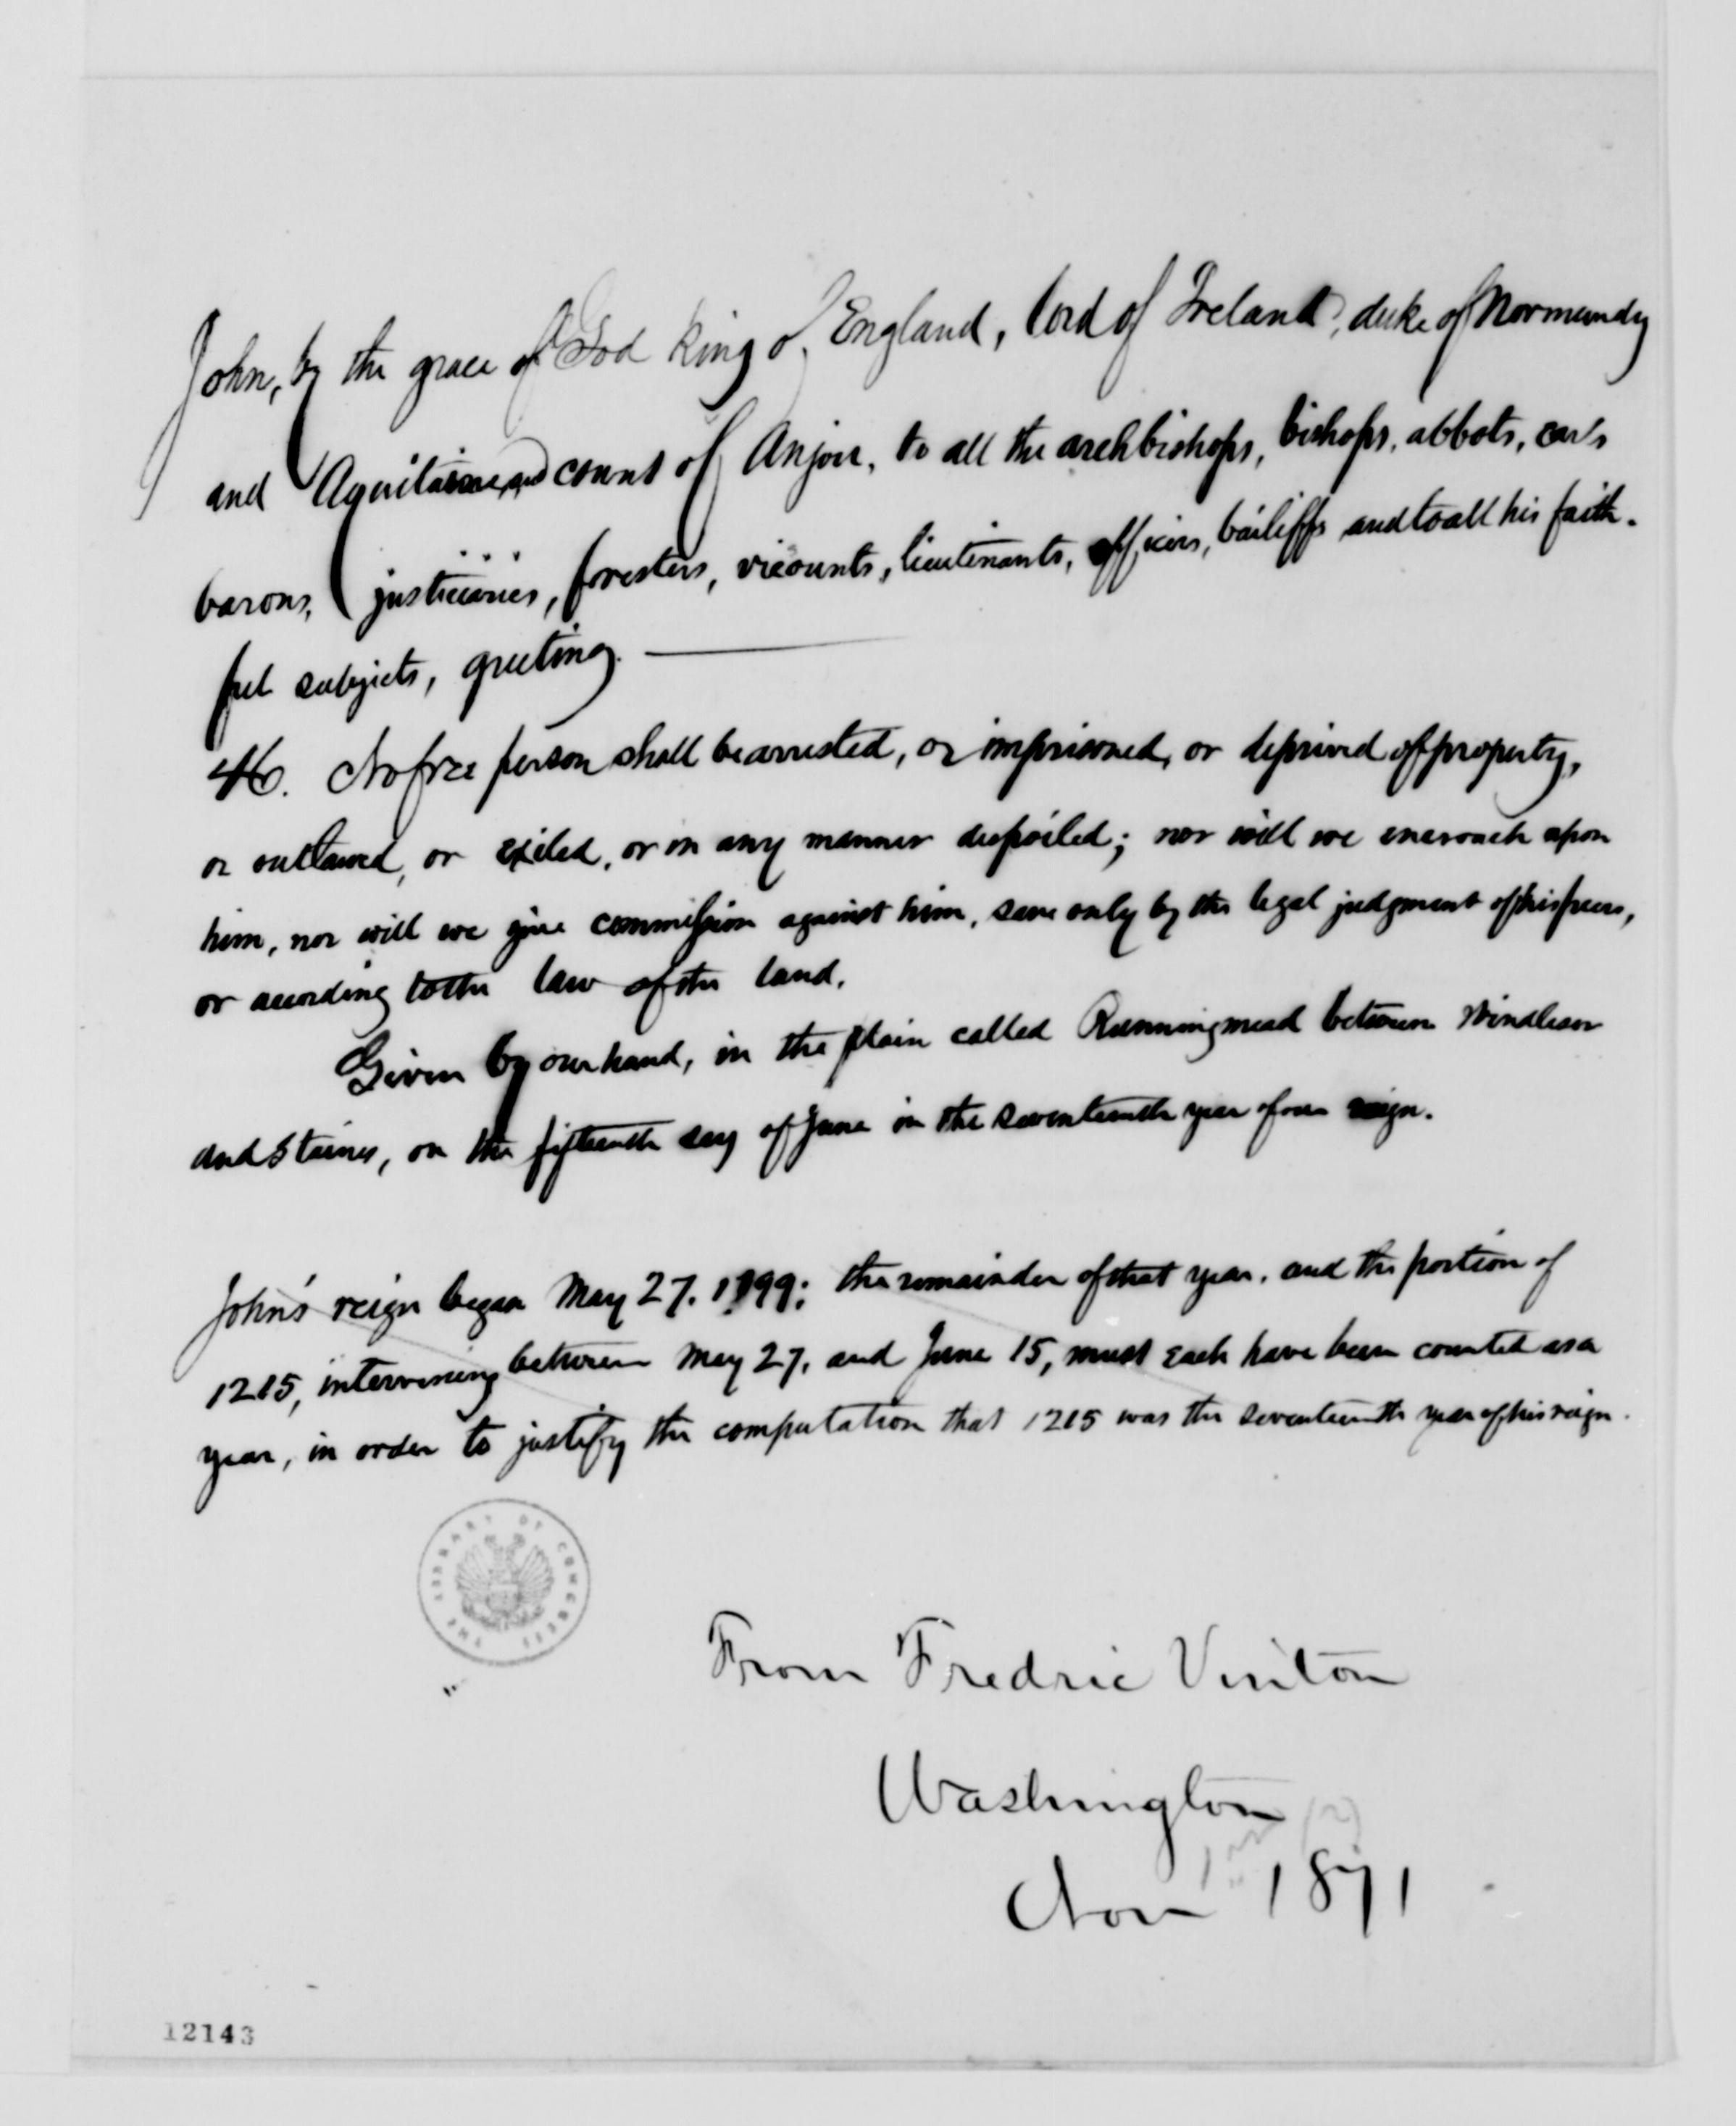 John, by the grace of God King of England, lord of Ireland, duke of Normandy
and Aquitaine, and count of Anjou, to all the archbishops, bishops, abbots, earls
barons, justiciaries, foresters, vicounts, lieutenants, officers, bailiffs and to all his faith-
ful subjects, greeting.
46. No free person shall be arrested, or imprisoned, or deprived of property,
or outlawed, or exiled, or in any manner despoiled; nor will we encroach upon
him, nor will we give commission against him, save only by the legal judgment of his peers,
or according to the law of the land.
Given by our hand, in the plain called Runningmead between Windlesor
and Staines, on the fifteenth day of June in the seventeenth year of our reign.
John's reign began May 27. 1199; the remainder of that year, and the portion of
1215, intervening between May 27, and June 15, must each have been counted as a
year, in order to justify the computation that 1215 was the seventeenth year of his reign.
THE LIBRARY OF CONGRESS
From Fredric Vinton
Washington
(2)
Nov 1871
12143